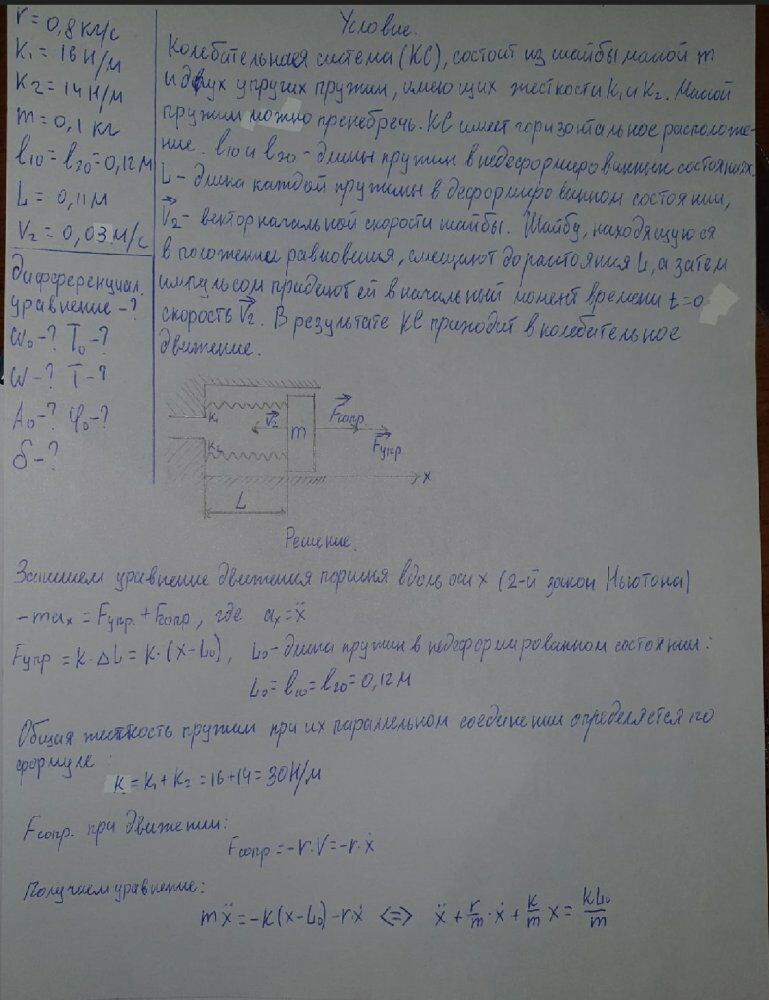 r = 0,8 кг/с
k₁ = 16 Н/м
k₂ = 14 Н/м
m = 0,1 кг
l₁₀ = l₂₀ = 0,12 м
L = 0,11 м
V₂ = 0,03 м/с
дифференциал.
уравнение - ?
ω₀ - ? T₀ - ?
ω - ? T - ?
A₀ - ? φ₀ - ?
δ - ?
Условие.
Колебательная система (КС), состоит из шайбы массой m
и двух упругих пружин, имеющих жесткости k₁ и k₂. Массой
пружин можно пренебречь. КС имеет горизонтальное расположе-
ние. l₁₀ и l₂₀ - длины пружин в недеформированных состояниях.
L - длина каждой пружины в деформированном состоянии,
V⃗₂ - вектор начальной скорости шайбы. Шайбу, находящуюся
в положении равновесия, смещают до расстояния L, а затем
импульсом придают ей в начальный момент времени t=0
скорость V⃗₂. В результате КС приходит в колебательное
движение.
k₁
V⃗₂
m
F⃗сопр
k₂
F⃗упр
x
L
Решение.
Запишем уравнение движения поршня вдоль оси x (2-й закон Ньютона)
-maₓ = Fупр. + Fсопр, где aₓ = ẍ
Fупр = k·ΔL = k·(x-L₀), L₀ - длина пружин в недеформированном состоянии:
L₀ = l₁₀ = l₂₀ = 0,12 м
Общая жесткость пружин при их параллельном соединении определяется по
формуле
k = k₁ + k₂ = 16 + 14 = 30 Н/м
Fсопр. при движении:
Fсопр = -r·V = -r·ẋ
Получаем уравнение:
mẍ = -k(x-L₀) - r·ẋ <=> ẍ + r/m · ẋ + k/m x = kL₀/m